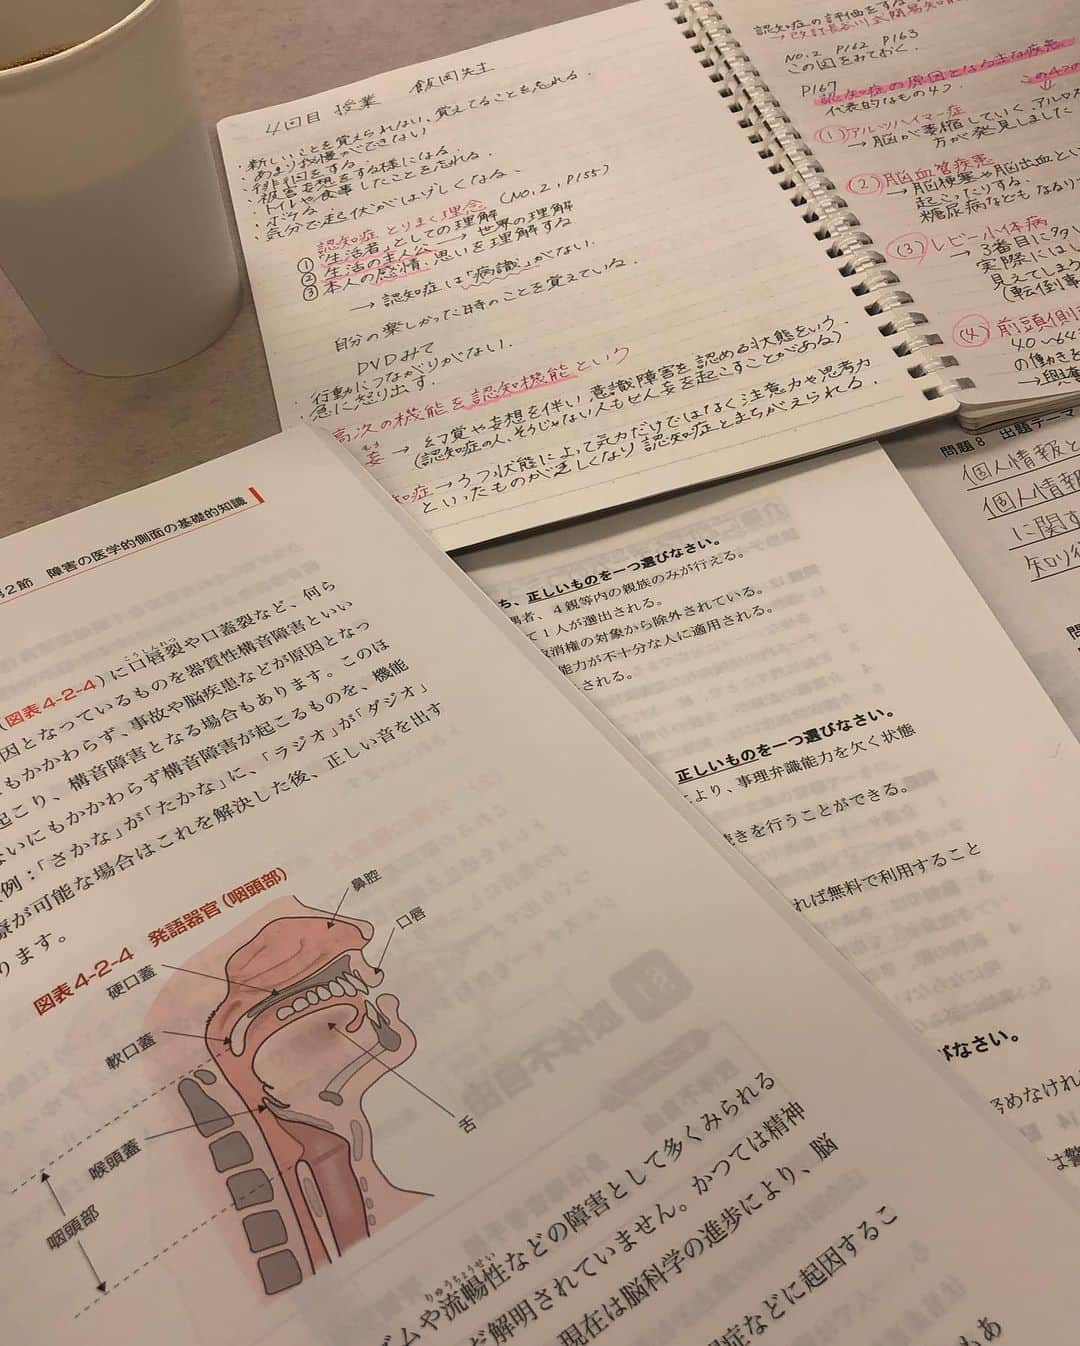 4回目 授業 飯岡先生
・新しいことを覚えられない、覚えてることを忘れる。
・あまり我慢ができない
・徘徊をする。
・被害妄想をする様になる。
・トイレや食事したことを忘れる。
・ボケる
・気分で起伏がはげしくなる、
認知症 とりまく理念 (NO.2, P155)
① "生活者"としての理解
② 生活の主人公 → 世界の理解
③ 本人の感情、思いを理解する
→ 認知症は「病識」がない。
自分の楽しかった時のことを覚えている。
DVDみて
・行動につながりがない.
・急に怒り出す.
高次の機能を認知機能という
妄 → 幻覚や妄想を伴い 意識障害を認める状態をいう.
(認知症の人、そうじゃない人もせん妄を起こすことがある)
知症 → うつ状態によって気力だけではなく注意力や思考力
といったものが乏しくなり 認知症とまちがえられる.
認知症の評価をする
→ 改訂長谷川式簡易知能
NO.2 P162 P163
この図をみておく.
P167
認知症の原因となる主な疾患
代表的なもの4つ. この4つの
① アルツハイマー症
→ 脳が萎縮していく、アルロス
方が発見しました
② 脳血管疾患
→ 脳梗塞や脳出血とい
起こったりする.
糖尿病なども
③ レビー小体病
→ 3番目に多い
実際には
見えてしまう
(転倒事
④ 前頭側頭
40〜64
の働きと
→ 興奮
第2節 障害の医学的側面の基礎的知識
(図表4-2-4)に口唇裂や口蓋裂など、何ら
こうしんれつ
因となっているものを器質性構音障害といい
もかかわらず、事故や脳疾患などが原因となっ
起こり、構音障害となる場合もあります。このほ
ないにもかかわらず構音障害が起こるものを、機能
例:「さかな」が「たかな」に、「ラジオ」が「ダジオ」
療が可能な場合はこれを解決した後、正しい音を出す
ります。
図表4-2-4 発語器官(咽頭部)
鼻腔
口唇
硬口蓋
軟口蓋
喉頭蓋
舌
咽頭部
ズムや流暢性などの障害として多くみられる
りゅうちょうせい
だ解明されていません。かつては精神
現在は脳科学の進歩により、脳
症などに起因するこ
もあ
ち、正しいものを一つ選びなさい。
偶者、4親等内の親族のみが行える。
て1人が選出される。
取消権の対象から除外されている。
能力が不十分な人に適用される。
される。
正しいものを一つ選びなさい。
により、事理弁識能力を欠く状態
続きを行うことができる。
れば無料で利用すること
びなさい。
努めなけれ
は警
問題8 出題テーマ
個人情報と
個人情報
に関す
知り得